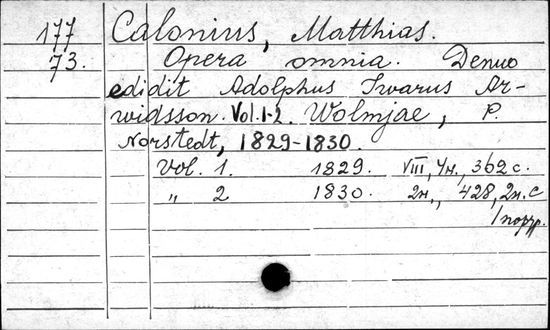 177 Calonius, Matthias.
73. Opera omnia. Denuo
edidit Adolphus Iwarus Ar-
widsson. Vol.1-2. Wolmjae, P.
Norstedt, 1829-1830.
Vol. 1. 1829. VIII, 4н., 362 с.
„ 2 1830. 2н., 428, 2н. с
1 портр.